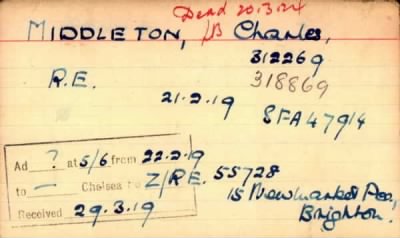 Dead 20.3.24
MIDDLETON, /B Charles,
312269
R.E. 318869
21.2.19
SFA 47914
Ad ? at 5/6 from 22.2.19
to — Chelsea to Z/RE. 55728
15 Newmarket
Received 29.3.19 Brighton.